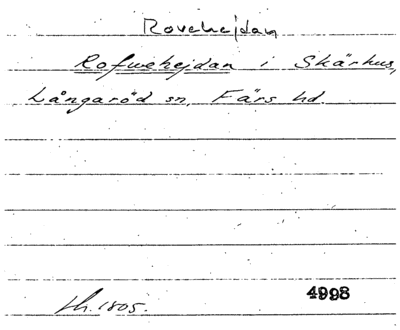 Rovehejdan
Rofwehejdan i Skärhus,
Långaröd sn. Färs hd.
th. 1805.
4998